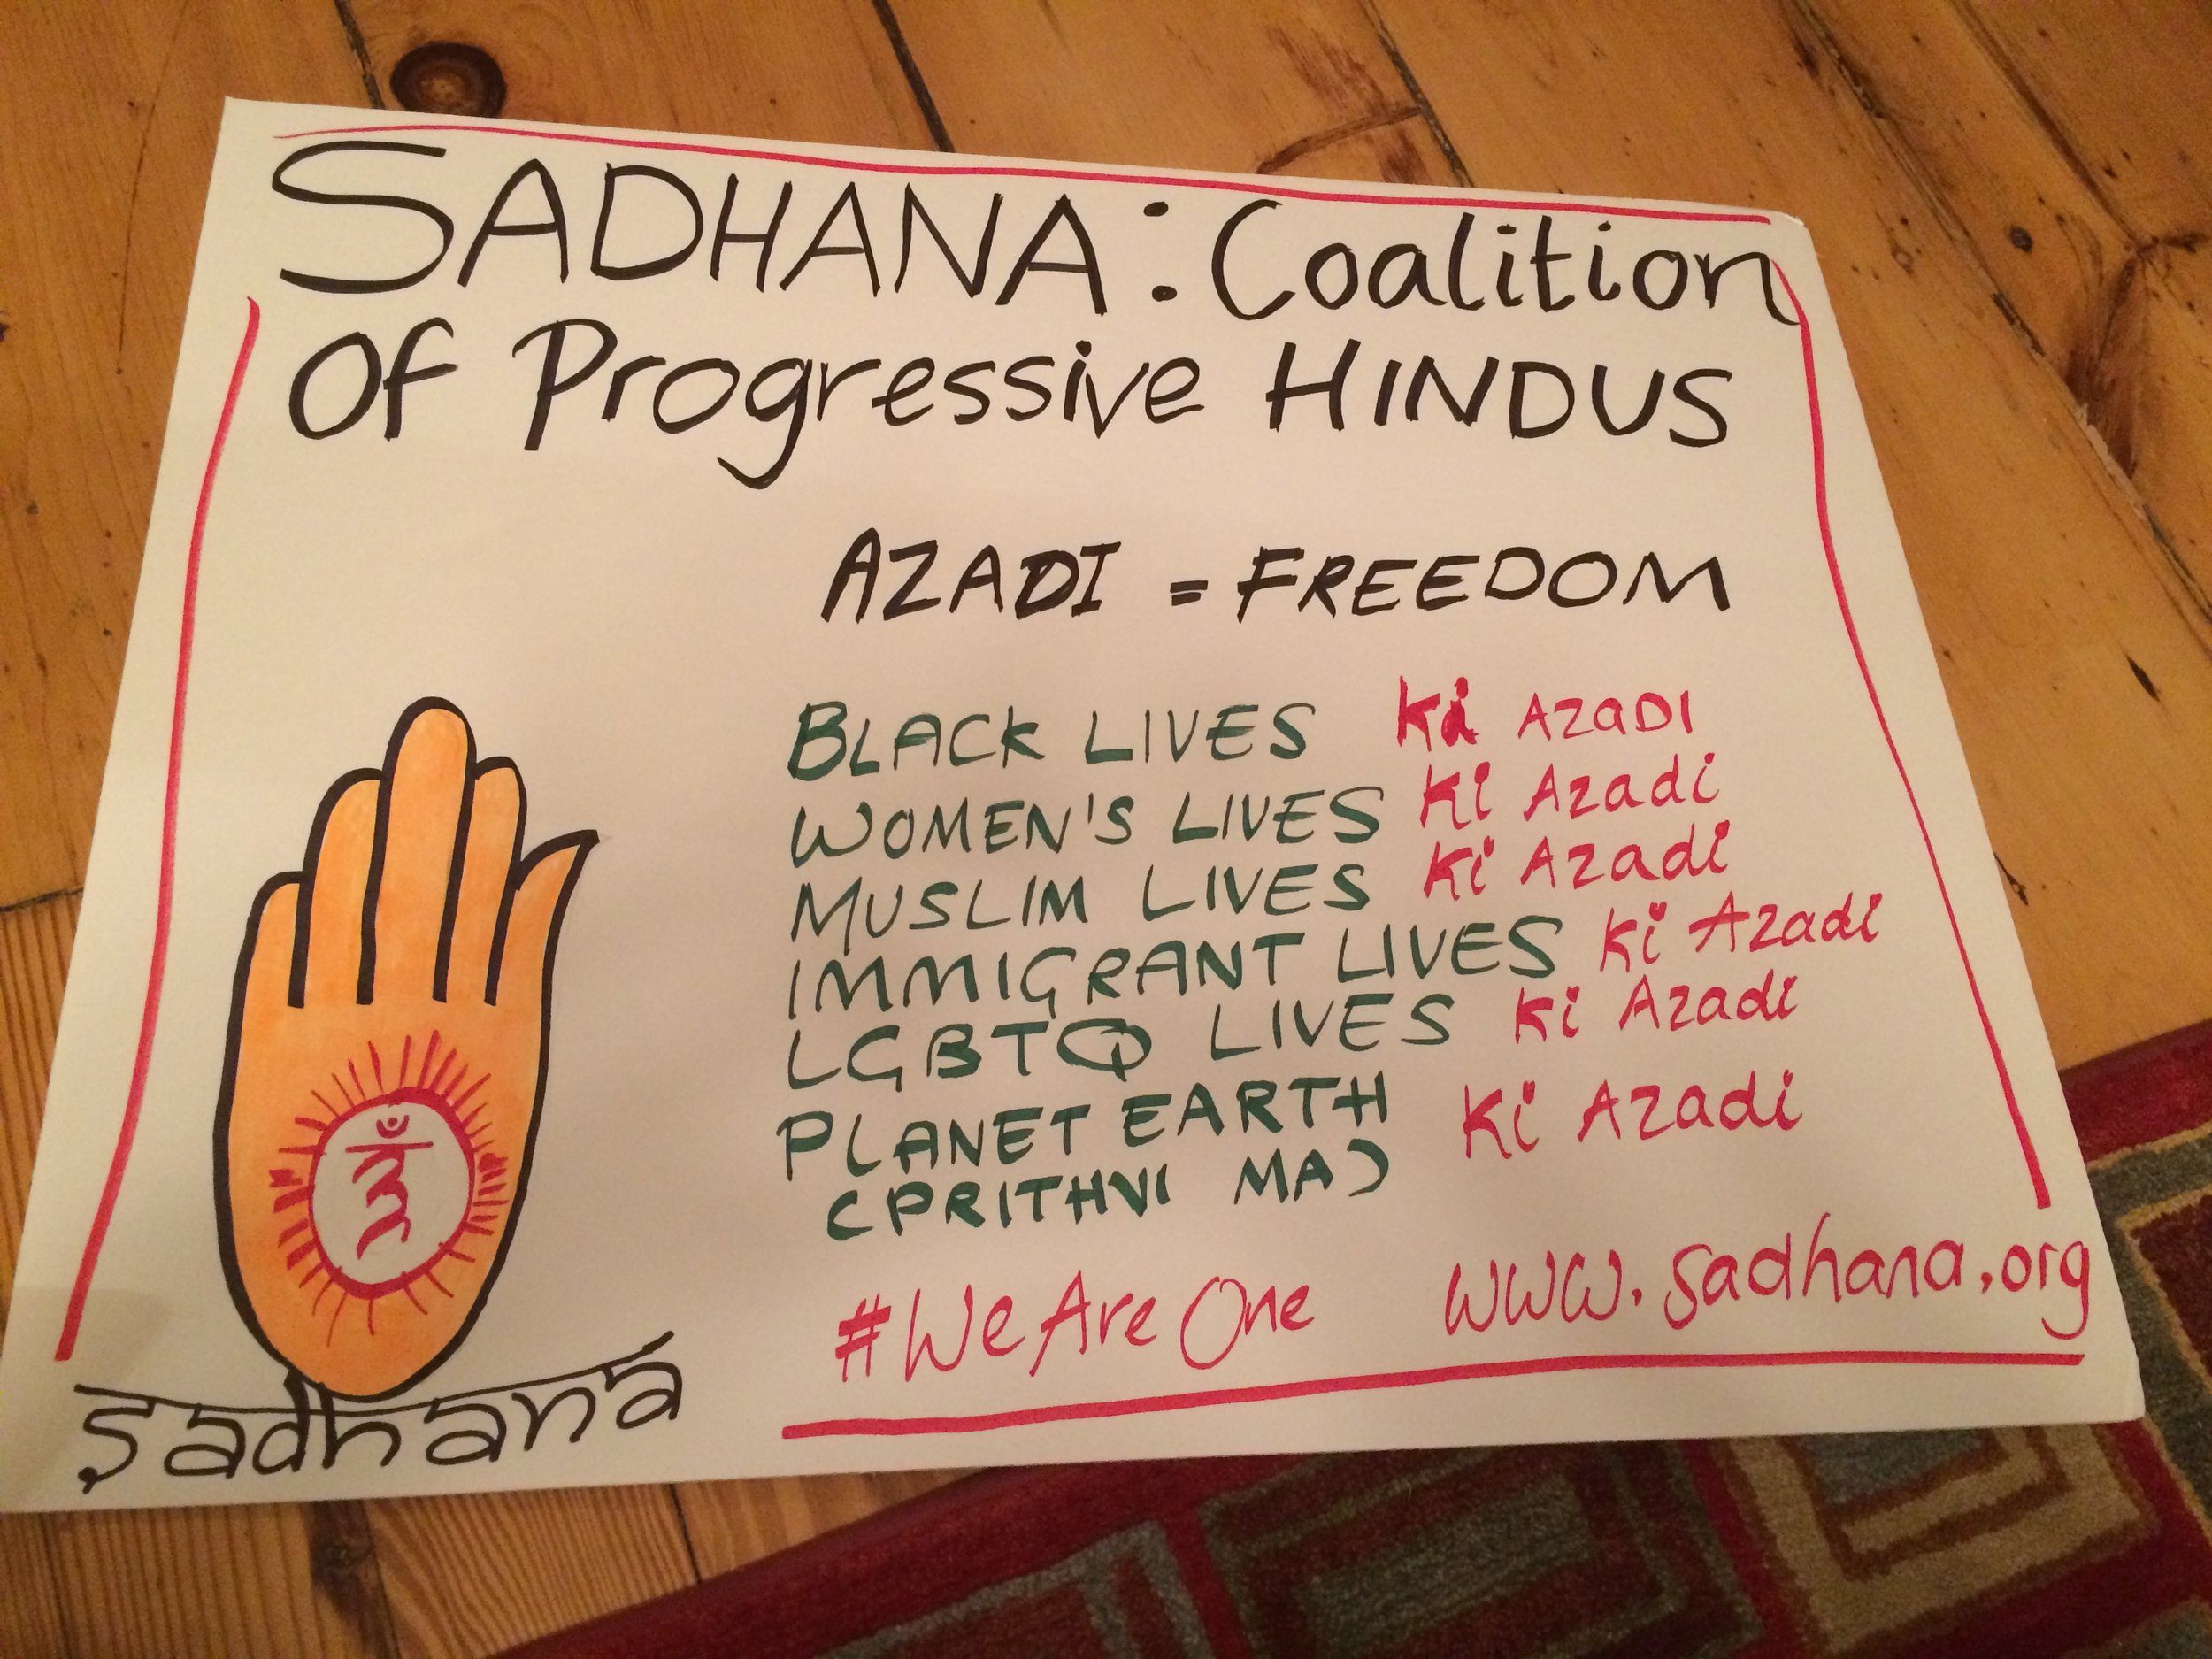 SADHANA: Coalition
of Progressive HINDUS
AZADI = FREEDOM
BLACK LIVES Ki AZADI
WOMEN'S LIVES Ki Azadi
MUSLIM LIVES Ki Azadi
IMMIGRANT LIVES Ki Azadi
LGBTQ LIVES Ki Azadi
PLANET EARTH Ki Azadi
(PRITHVI MA)
#WeAreOne www.sadhana.org
sadhana